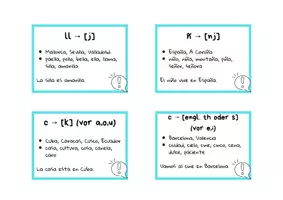 ll → [j]
Mallorca, Sevilla, Valladolid
paella, pollo, bella, ella, llama,
silla, amarilla
La silla es amarilla.
ñ → [nj]
España, A Coruña
niño, niña, montaña, piña,
señor, señora
El niño vive en España.
c → [k] (vor a,o,u)
Cuba, Caracas, Cusco, Ecuador
casa, cultura, cosa, canela,
caro
La casa está en Cuba.
c → [engl. th oder s]
(vor e,i)
Barcelona, Valencia
ciudad, cielo, cine, cinco, cena,
dulce, paciente
Vamos al cine en Barcelona.